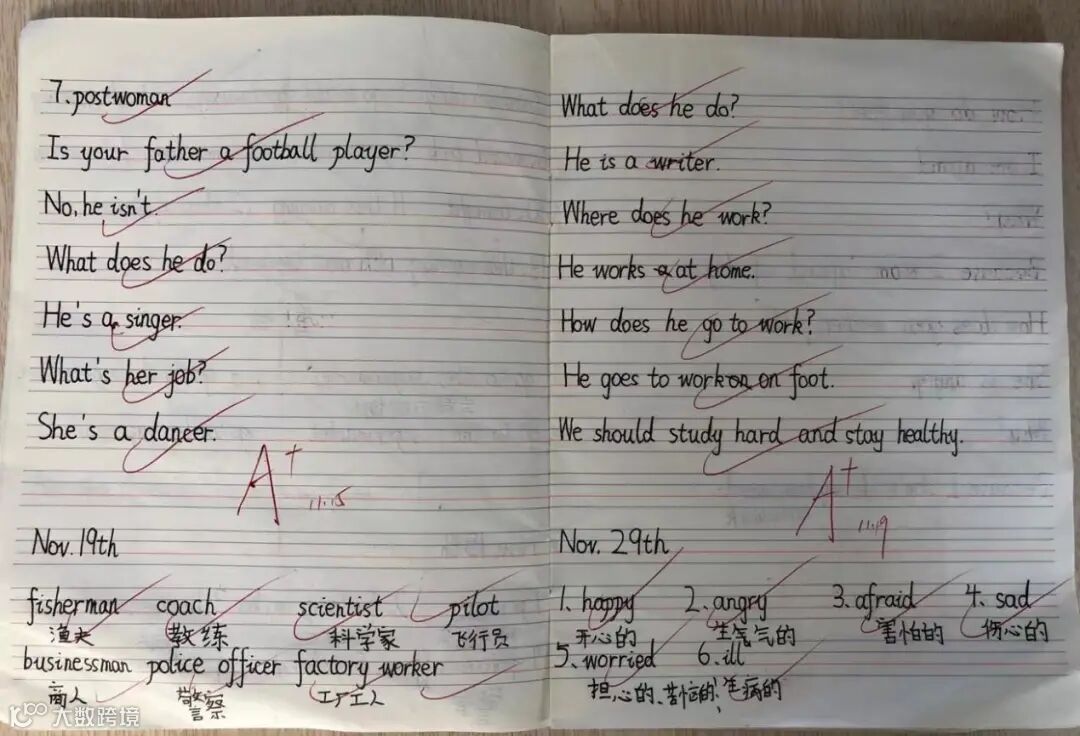 7.postwoman
Is your father a football player?
No, he isn't.
What does he do?
He's a singer.
What's her job?
She's a dancer.
A+
11.15
Nov.19th
fisherman coach scientist pilot
渔夫 教练 科学家 飞行员
businessman police officer factory worker
商人 警察 工厂工人
What does he do?
He is a writer.
Where does he work?
He works at home.
How does he go to work?
He goes to work on foot.
We should study hard and stay healthy.
A+
11.19
Nov. 29th
1. happy 2. angry 3. afraid 4. sad
开心的 生气的 害怕的 伤心的
5. worried 6. ill
担心的、苦恼的 生病的
大数跨境